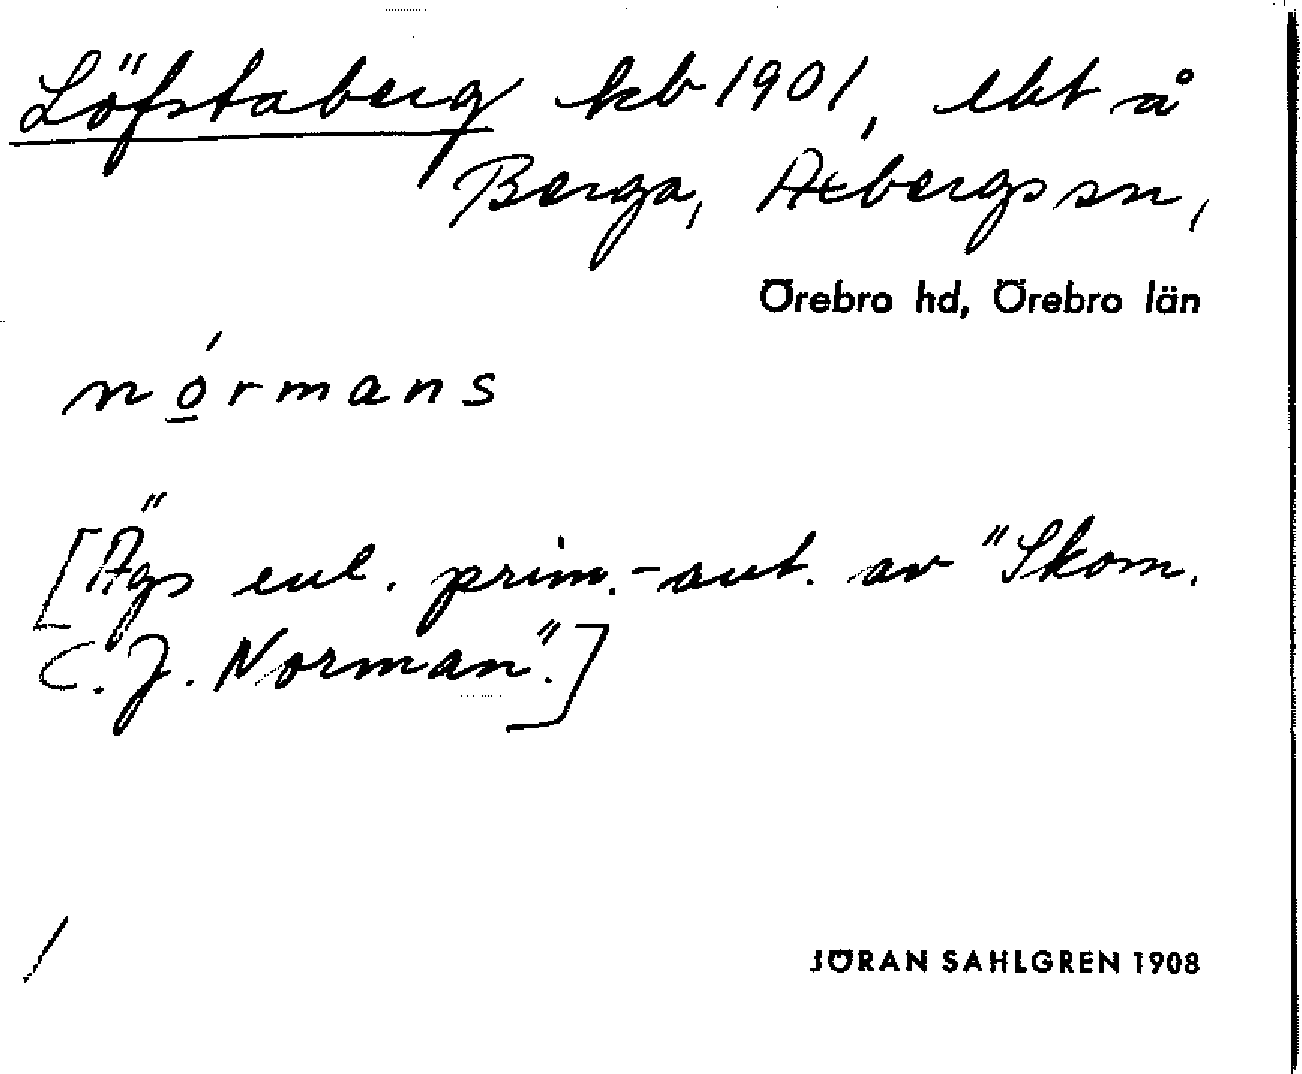 Löfstaberg kb 1901, ebt å
Berga, Axbergs sn,
Örebro hd, Örebro län
nó̲rmans
[Ägs enl. prim.-ant. av "Skom.
C. J. Norman".]
JÖRAN SAHLGREN 1908